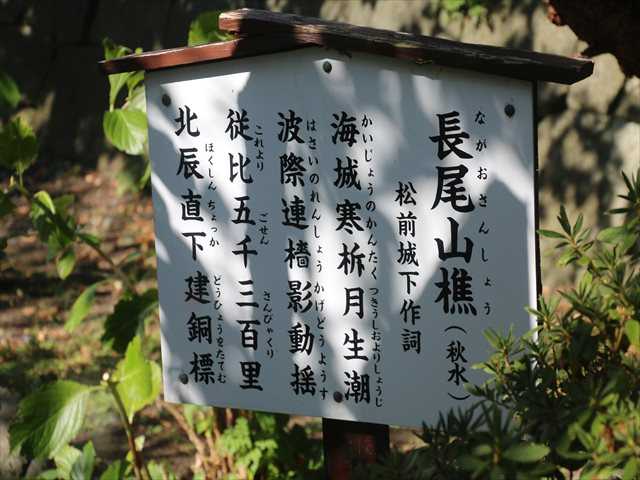 長尾山樵（秋水）
ながおさんしょう
松前城下作詞
海城寒析月生潮
かいじょうのかんたくつきうしおよりしょうじ
波際連檣影動揺
はさいのれんしょうかげどうようす
従比五千三百里
これより ごせん さんびゃくり
北辰直下建銅標
ほくしんちょっか どうひょうをたてむ